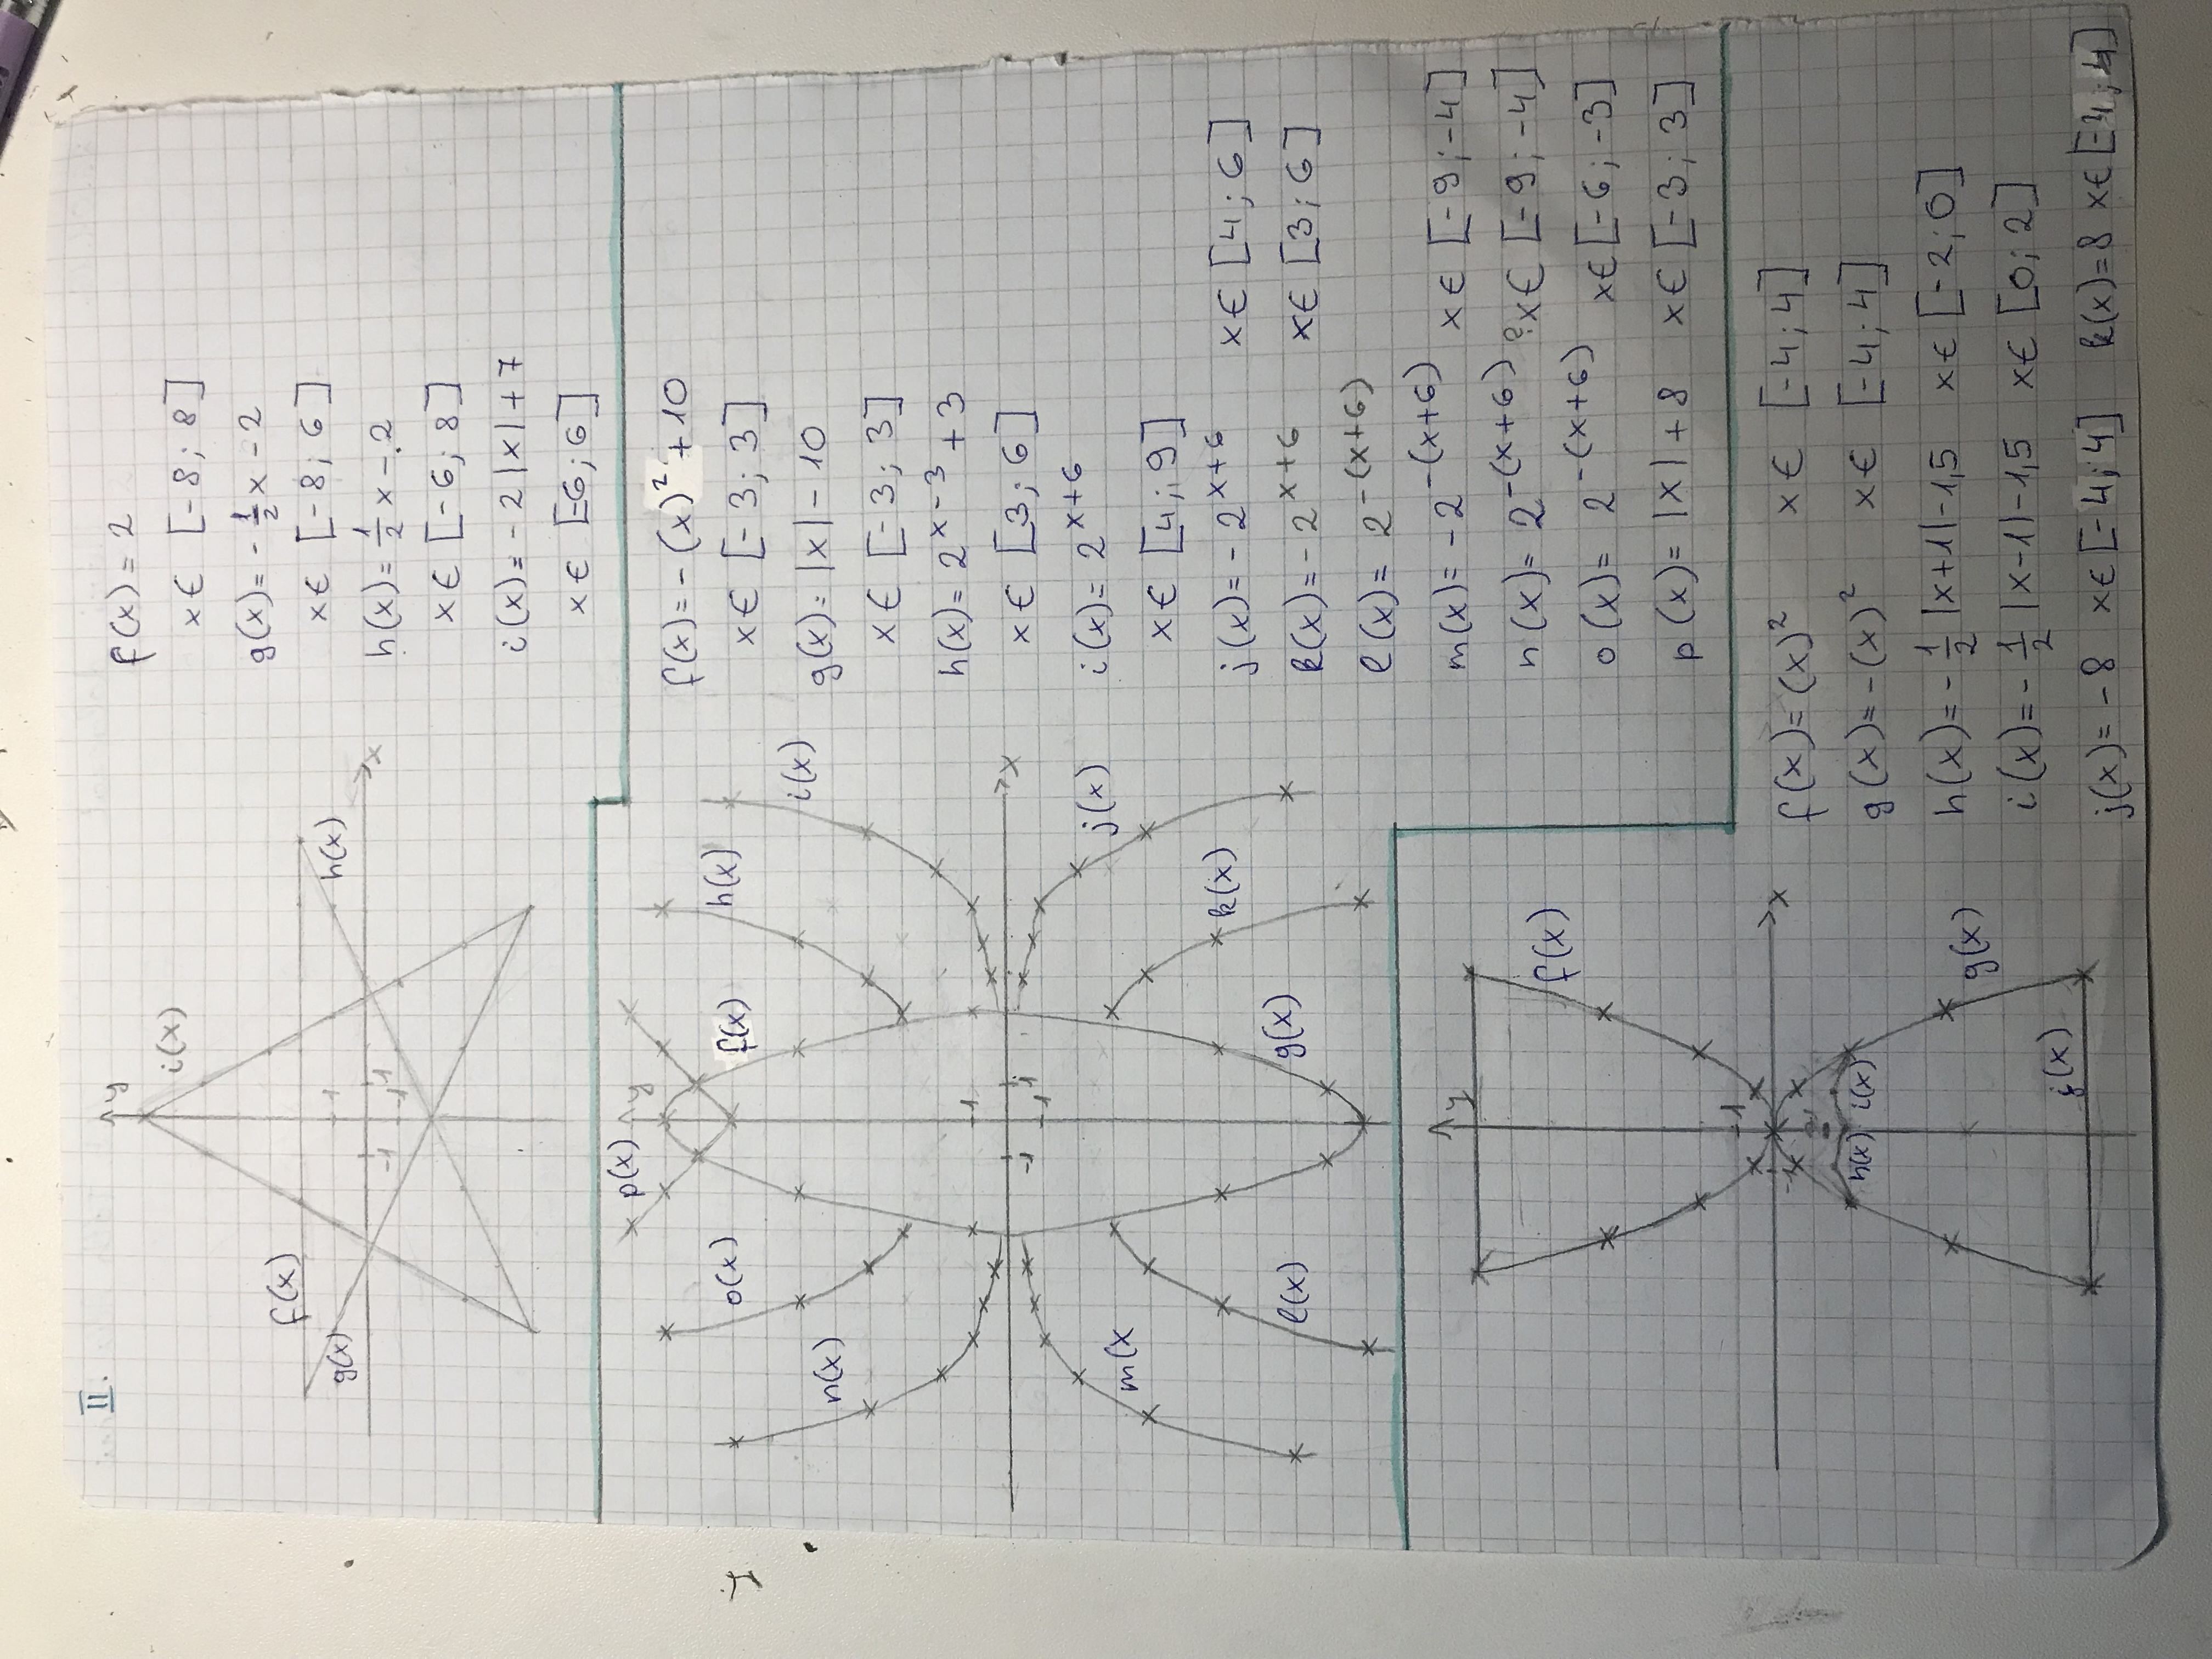 II.
y
i(x)
f(x)
g(x)
h(x)
x
1
-1
1
-1
f(x) = 2
x ∈ [-8; 8]
g(x) = -1/2 x - 2
x ∈ [-8; 6]
h(x) = 1/2 x - 2
x ∈ [-6; 8]
i(x) = -2|x| + 7
x ∈ [-6; 6]
p(x)
y
f(x)
h(x)
i(x)
o(x)
n(x)
1
-1
1
x
m(x
l(x)
g(x)
k(x)
j(x)
f(x) = -(x)² + 10
x ∈ [-3; 3]
g(x) = |x| - 10
x ∈ [-3; 3]
h(x) = 2^x-3 + 3
x ∈ [3; 6]
i(x) = 2^x+6
x ∈ [4; 9]
j(x) = -2^x+6 x ∈ [4; 6]
k(x) = -2^x+6 x ∈ [3; 6]
l(x) = 2^-(x+6)
m(x) = -2^-(x+6) x ∈ [-9; -4]
n(x) = 2^-(x+6) ? x ∈ [-9; -4]
o(x) = 2^-(x+6) x ∈ [-6; -3]
p(x) = |x| + 8 x ∈ [-3; 3]
y
f(x)
1
x
-1
h(x)
i(x)
g(x)
j(x)
f(x) = (x)² x ∈ [-4; 4]
g(x) = -(x)² x ∈ [-4; 4]
h(x) = -1/2 |x+1| - 1,5 x ∈ [-2; 0]
i(x) = -1/2 |x-1| - 1,5 x ∈ [0; 2]
j(x) = -8 x ∈ [-4; 4] k(x) = 8 x ∈ [-4; 4]